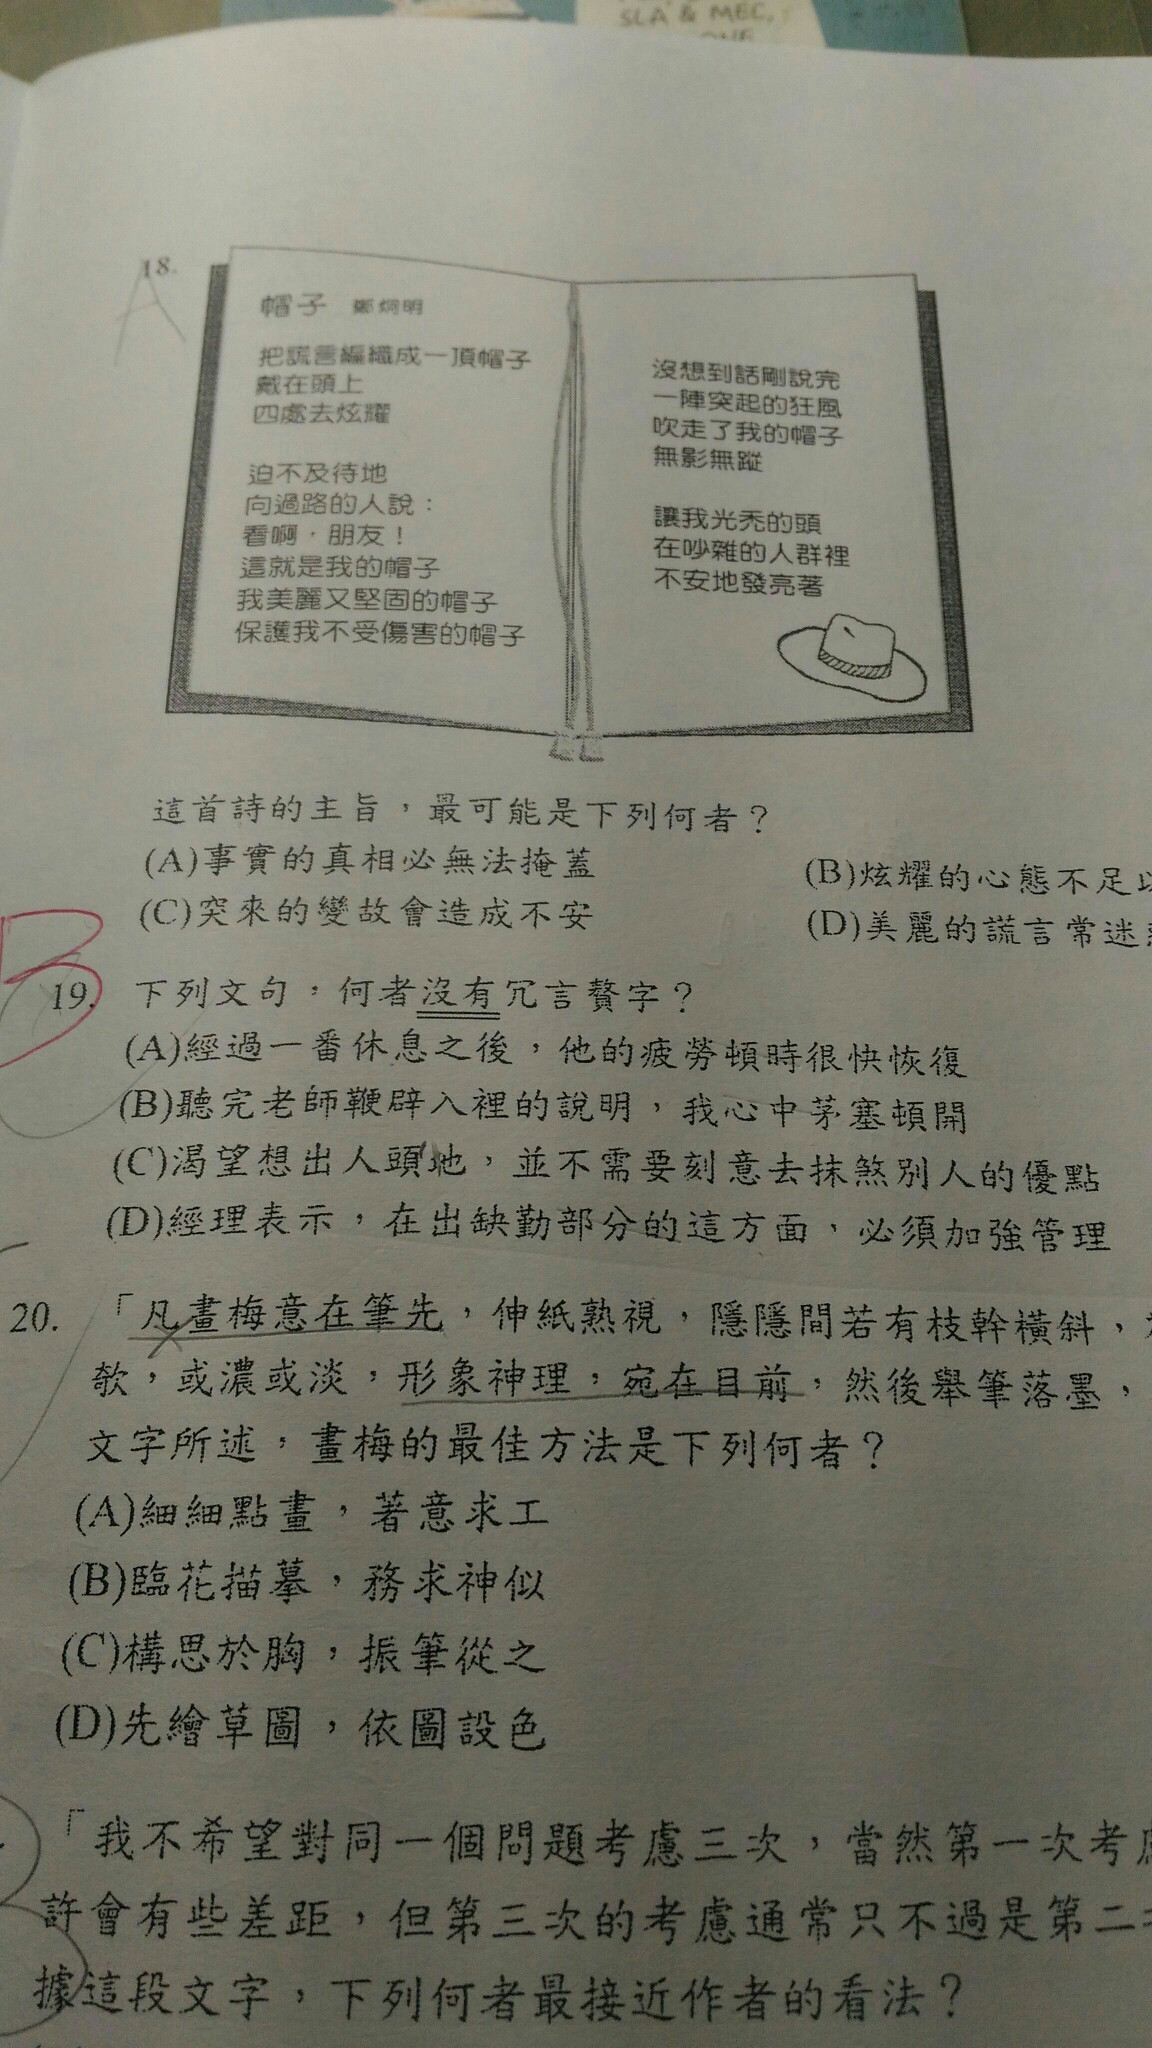 SLA & MEC,
ONE
18.
A
帽子 鄭烱明
把謊言編織成一頂帽子
戴在頭上
四處去炫耀
迫不及待地
向過路的人說：
看啊，朋友！
這就是我的帽子
我美麗又堅固的帽子
保護我不受傷害的帽子
沒想到話剛說完
一陣突起的狂風
吹走了我的帽子
無影無蹤
讓我光禿的頭
在吵雜的人群裡
不安地發亮著
這首詩的主旨，最可能是下列何者？
(A)事實的真相必無法掩蓋
(B)炫耀的心態不足以
(C)突來的變故會造成不安
(D)美麗的謊言常迷
B
19. 下列文句，何者沒有冗言贅字？
(A)經過一番休息之後，他的疲勞頓時很快恢復
(B)聽完老師鞭辟入裡的說明，我心中茅塞頓開
(C)渴望想出人頭地，並不需要刻意去抹煞別人的優點
(D)經理表示，在出缺勤部分的這方面，必須加強管理
20. 「凡畫梅意在筆先，伸紙熟視，隱隱間若有枝幹橫斜，
欹，或濃或淡，形象神理，宛在目前，然後舉筆落墨，
文字所述，畫梅的最佳方法是下列何者？
(A)細細點畫，著意求工
(B)臨花描摹，務求神似
(C)構思於胸，振筆從之
(D)先繪草圖，依圖設色
「我不希望對同一個問題考慮三次，當然第一次考慮
許會有些差距，但第三次的考慮通常只不過是第二
據這段文字，下列何者最接近作者的看法？